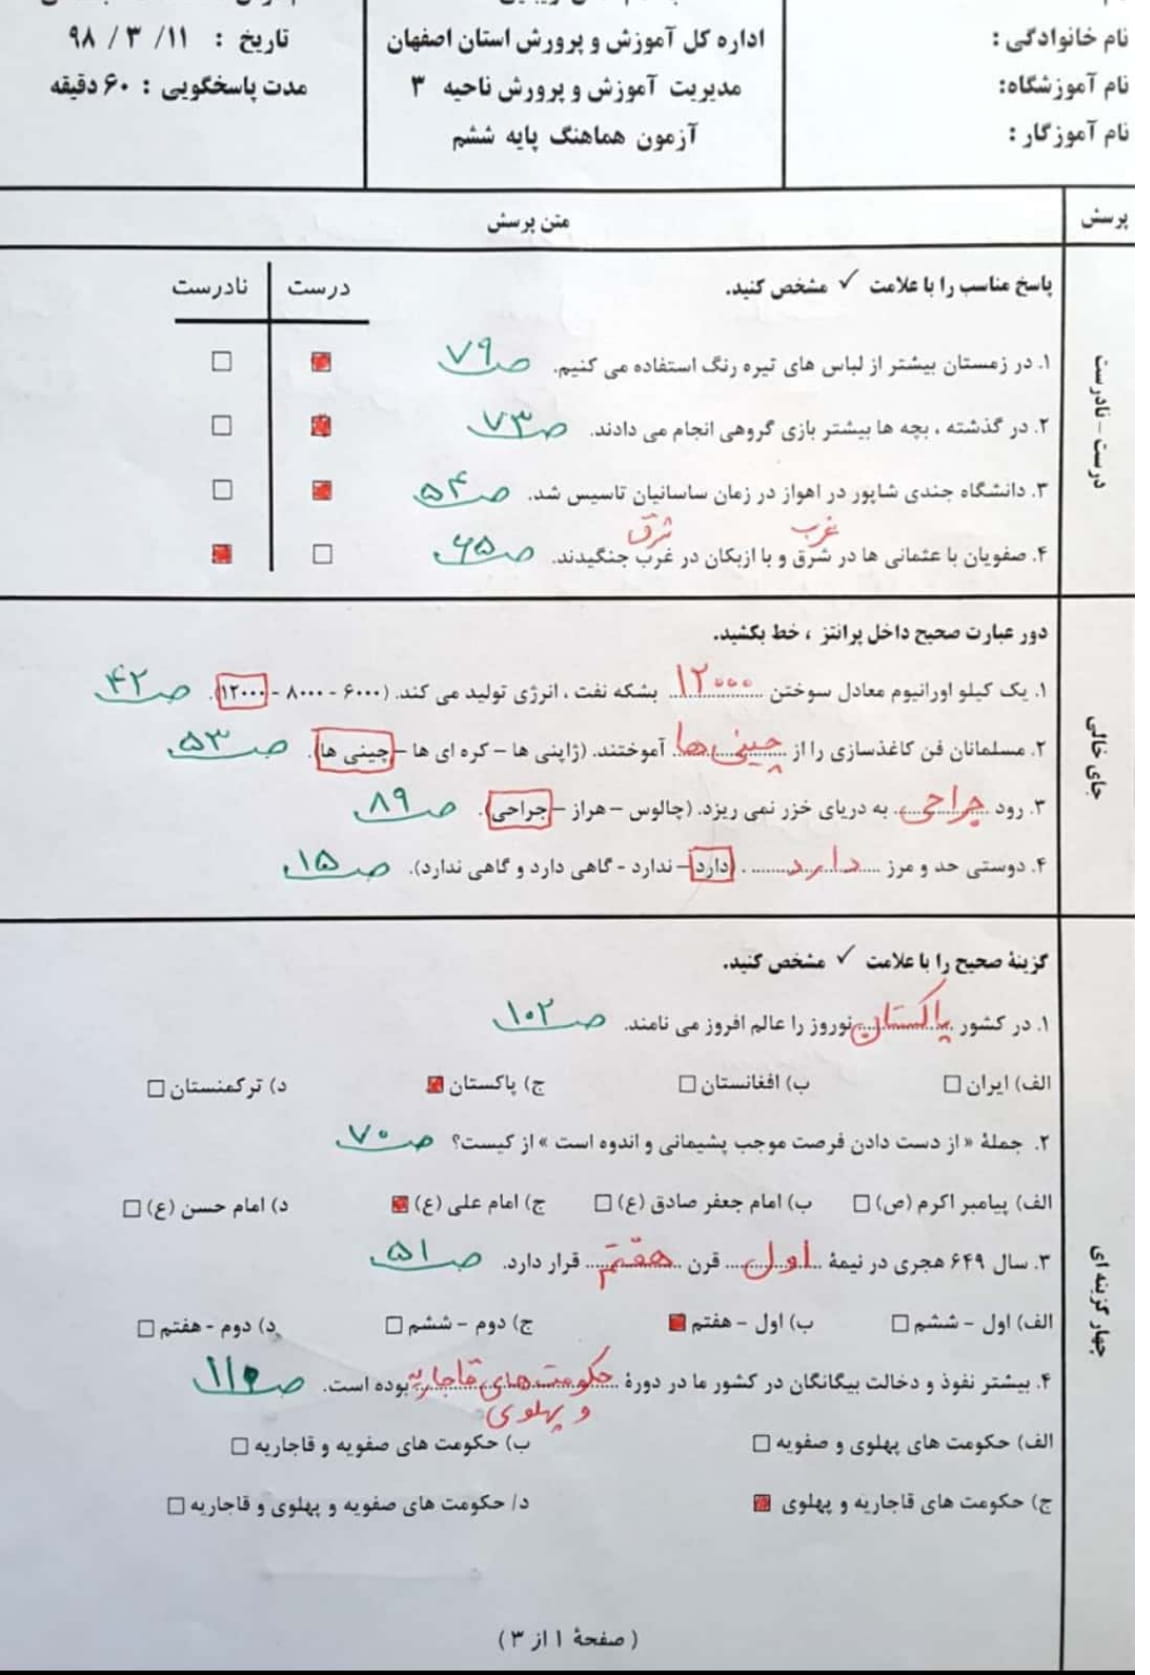 نام خانوادگی :
نام آموزشگاه:
نام آموزگار :
اداره کل آموزش و پرورش استان اصفهان
مدیریت آموزش و پرورش ناحیه ۳
آزمون هماهنگ پایه ششم
تاریخ : ۱۱/ ۳ / ۹۸
مدت پاسخگویی : ۶۰ دقیقه
پرسش
متن پرسش
درست - نادرست
پاسخ مناسب را با علامت ✓ مشخص کنید.
درست
نادرست
۱. در زمستان بیشتر از لباس های تیره رنگ استفاده می کنیم. ص۷۹
۲. در گذشته ، بچه ها بیشتر بازی گروهی انجام می دادند. ص۷۳
۳. دانشگاه جندی شاپور در اهواز در زمان ساسانیان تاسیس شد. ص۵۴
غرب شرق
۴. صفویان با عثمانی ها در شرق و با ازبکان در غرب جنگیدند. ص۶۵
جای خالی
دور عبارت صحیح داخل پرانتز ، خط بکشید.
۱. یک کیلو اورانیوم معادل سوختن ۱۲۰۰۰ بشکه نفت ، انرژی تولید می کند. (۶۰۰۰ - ۸۰۰۰ - ۱۲۰۰۰). ص۴۲
۲. مسلمانان فن کاغذسازی را از چینی ها آموختند. (ژاپنی ها - کره ای ها - چینی ها). ص۵۳
۳. رود جراحی به دریای خزر نمی ریزد. (چالوس - هراز - جراحی). ص۸۹
۴. دوستی حد و مرز دارد . (دارد - ندارد - گاهی دارد و گاهی ندارد). ص۱۵
چهار گزینه ای
گزینهٔ صحیح را با علامت ✓ مشخص کنید.
۱. در کشور پاکستان نوروز را عالم افروز می نامند. ص۱۰۲
الف) ایران ☐ ب) افغانستان ☐ ج) پاکستان د) ترکمنستان ☐
۲. جملهٔ « از دست دادن فرصت موجب پشیمانی و اندوه است » از کیست؟ ص۷۰
الف) پیامبر اکرم (ص) ☐ ب) امام جعفر صادق (ع) ☐ ج) امام علی (ع) د) امام حسن (ع) ☐
۳. سال ۶۴۹ هجری در نیمهٔ اول قرن هفتم قرار دارد. ص۵۱
الف) اول - ششم ☐ ب) اول - هفتم ج) دوم - ششم ☐ د) دوم - هفتم ☐
۴. بیشتر نفوذ و دخالت بیگانگان در کشور ما در دورهٔ حکومت های قاجاریه بوده است. ص۱۱۰
و پهلوی
الف) حکومت های پهلوی و صفویه ☐ ب) حکومت های صفویه و قاجاریه ☐
ج) حکومت های قاجاریه و پهلوی د/ حکومت های صفویه و پهلوی و قاجاریه ☐
( صفحهٔ ۱ از ۳ )